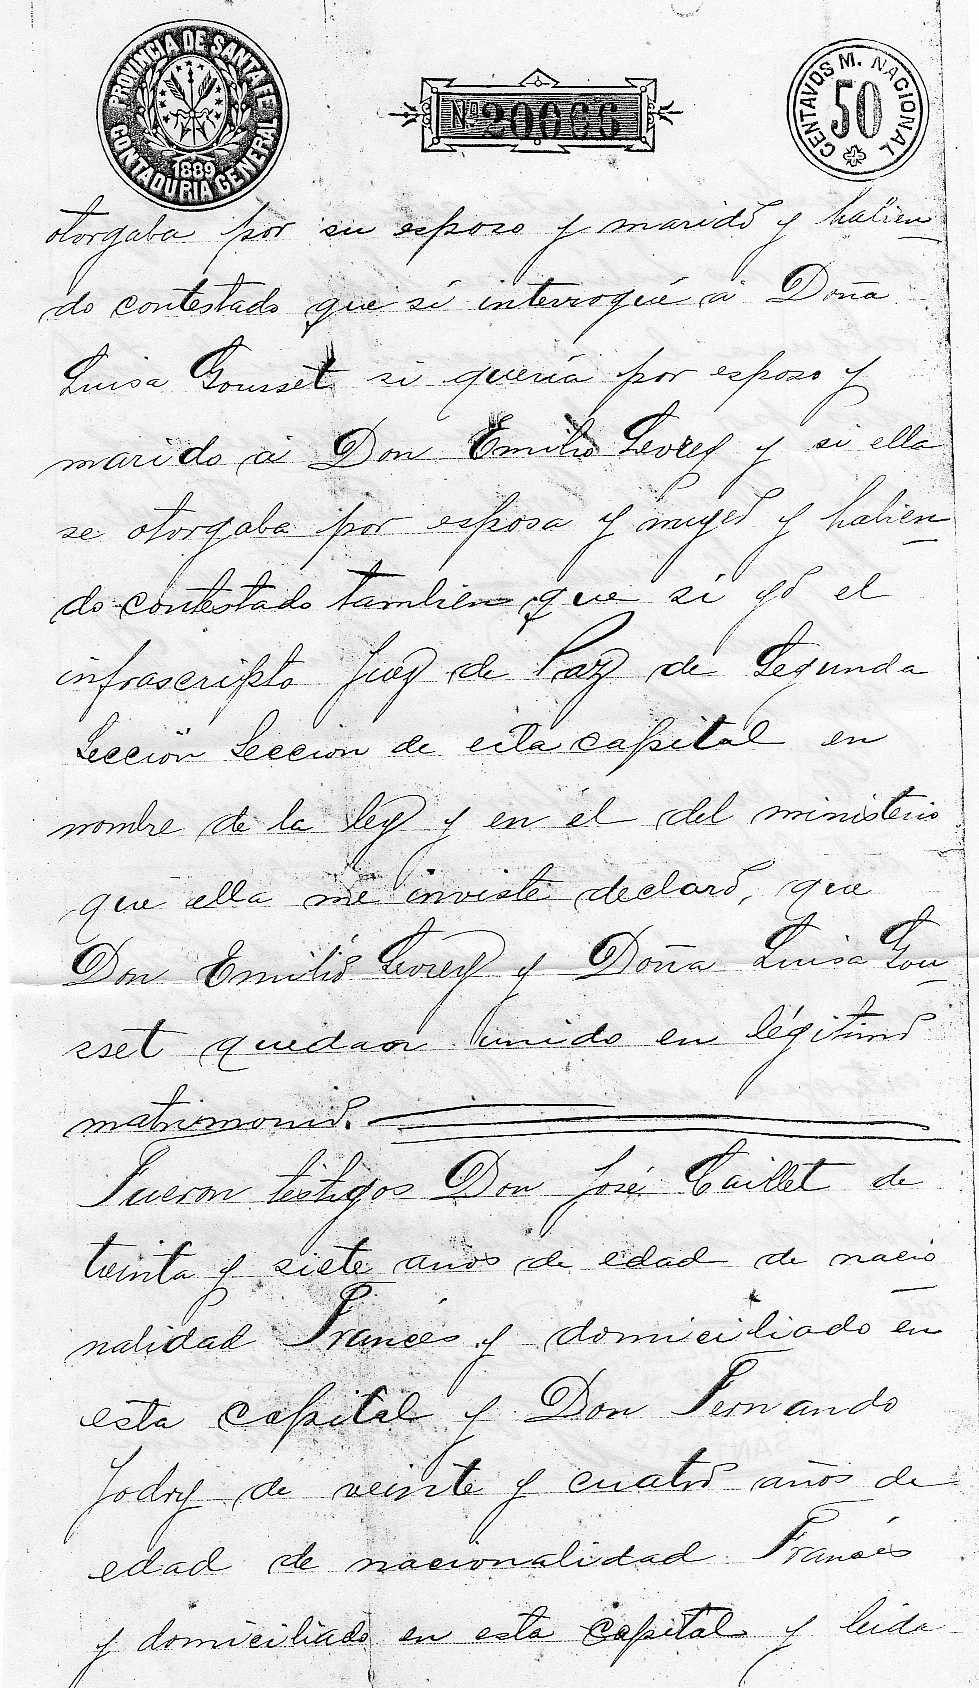 PROVINCIA DE SANTA FE
CONTADURIA GENERAL
1889
No 20666
CENTAVOS M. NACIONAL
50
otorgaba por su esposo y marido y habien
do contestado que sí interrogué a Doña
Luisa Gousset si queria por esposo y
marido a Don Emilio Levrey y si ella
se otorgaba por esposa y muger y habien
do contestado tambien que sí yo el
infrascripto Juez de Paz de Segunda
Sección Seccion de esta capital en
nombre de la ley y en él del ministerio
que ella me inviste declaro, que
Don Emilio Levrey y Doña Luisa Gou
sset quedan unido en légitimo
matrimonio.
Fueron testigos Don José Caillet de
treinta y siete años de edad de nacio
nalidad Francés y domiciliado en
esta capital y Don Fernando
Jodry de veinte y cuatro años de
edad de nacionalidad Francés
y domiciliado en esta capital y leida